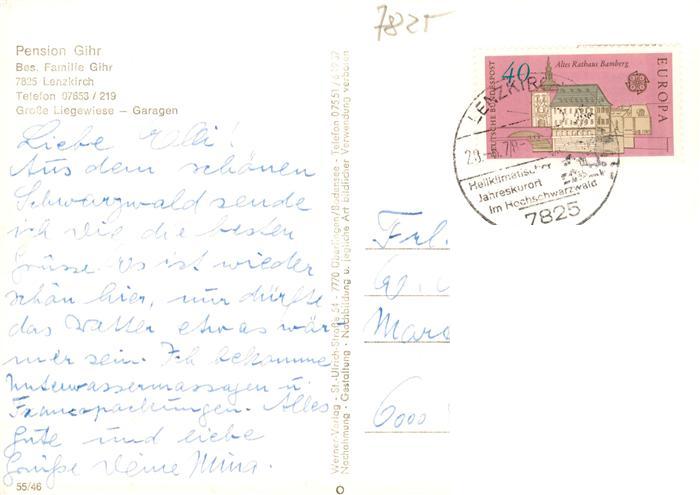 7825
Pension Gihr
Bes. Familie Gihr
7825 Lenzkirch
Telefon 07653 / 219
Große Liegewiese – Garagen
Liebe Elli!
Aus dem schönen
Schwarzwald sende
ich Dir die besten
Grüsse. Es ist wieder
schön hier, nur dürfte
das Wetter etwas wär
mer sein. Ich bekomme
Unterwassermassagen u.
Fangopackungen. Alles
Gute und liebe
Grüße Deine Mina.
55/46
Werner-Verlag - St.-Ulrich-Straße 54 - 7770 Überlingen/Bodensee - Telefon 07551
Nachahmung - Gestaltung - Nachbildung u. jegliche Art bildlicher Verwendung verboten
DEUTSCHE BUNDESPOST
40
Altes Rathaus Bamberg
EUROPA
LENZKIRCH
Heilklimatischer
Jahreskurort
im Hochschwarzwald
7825
Frl.
Mar
6000